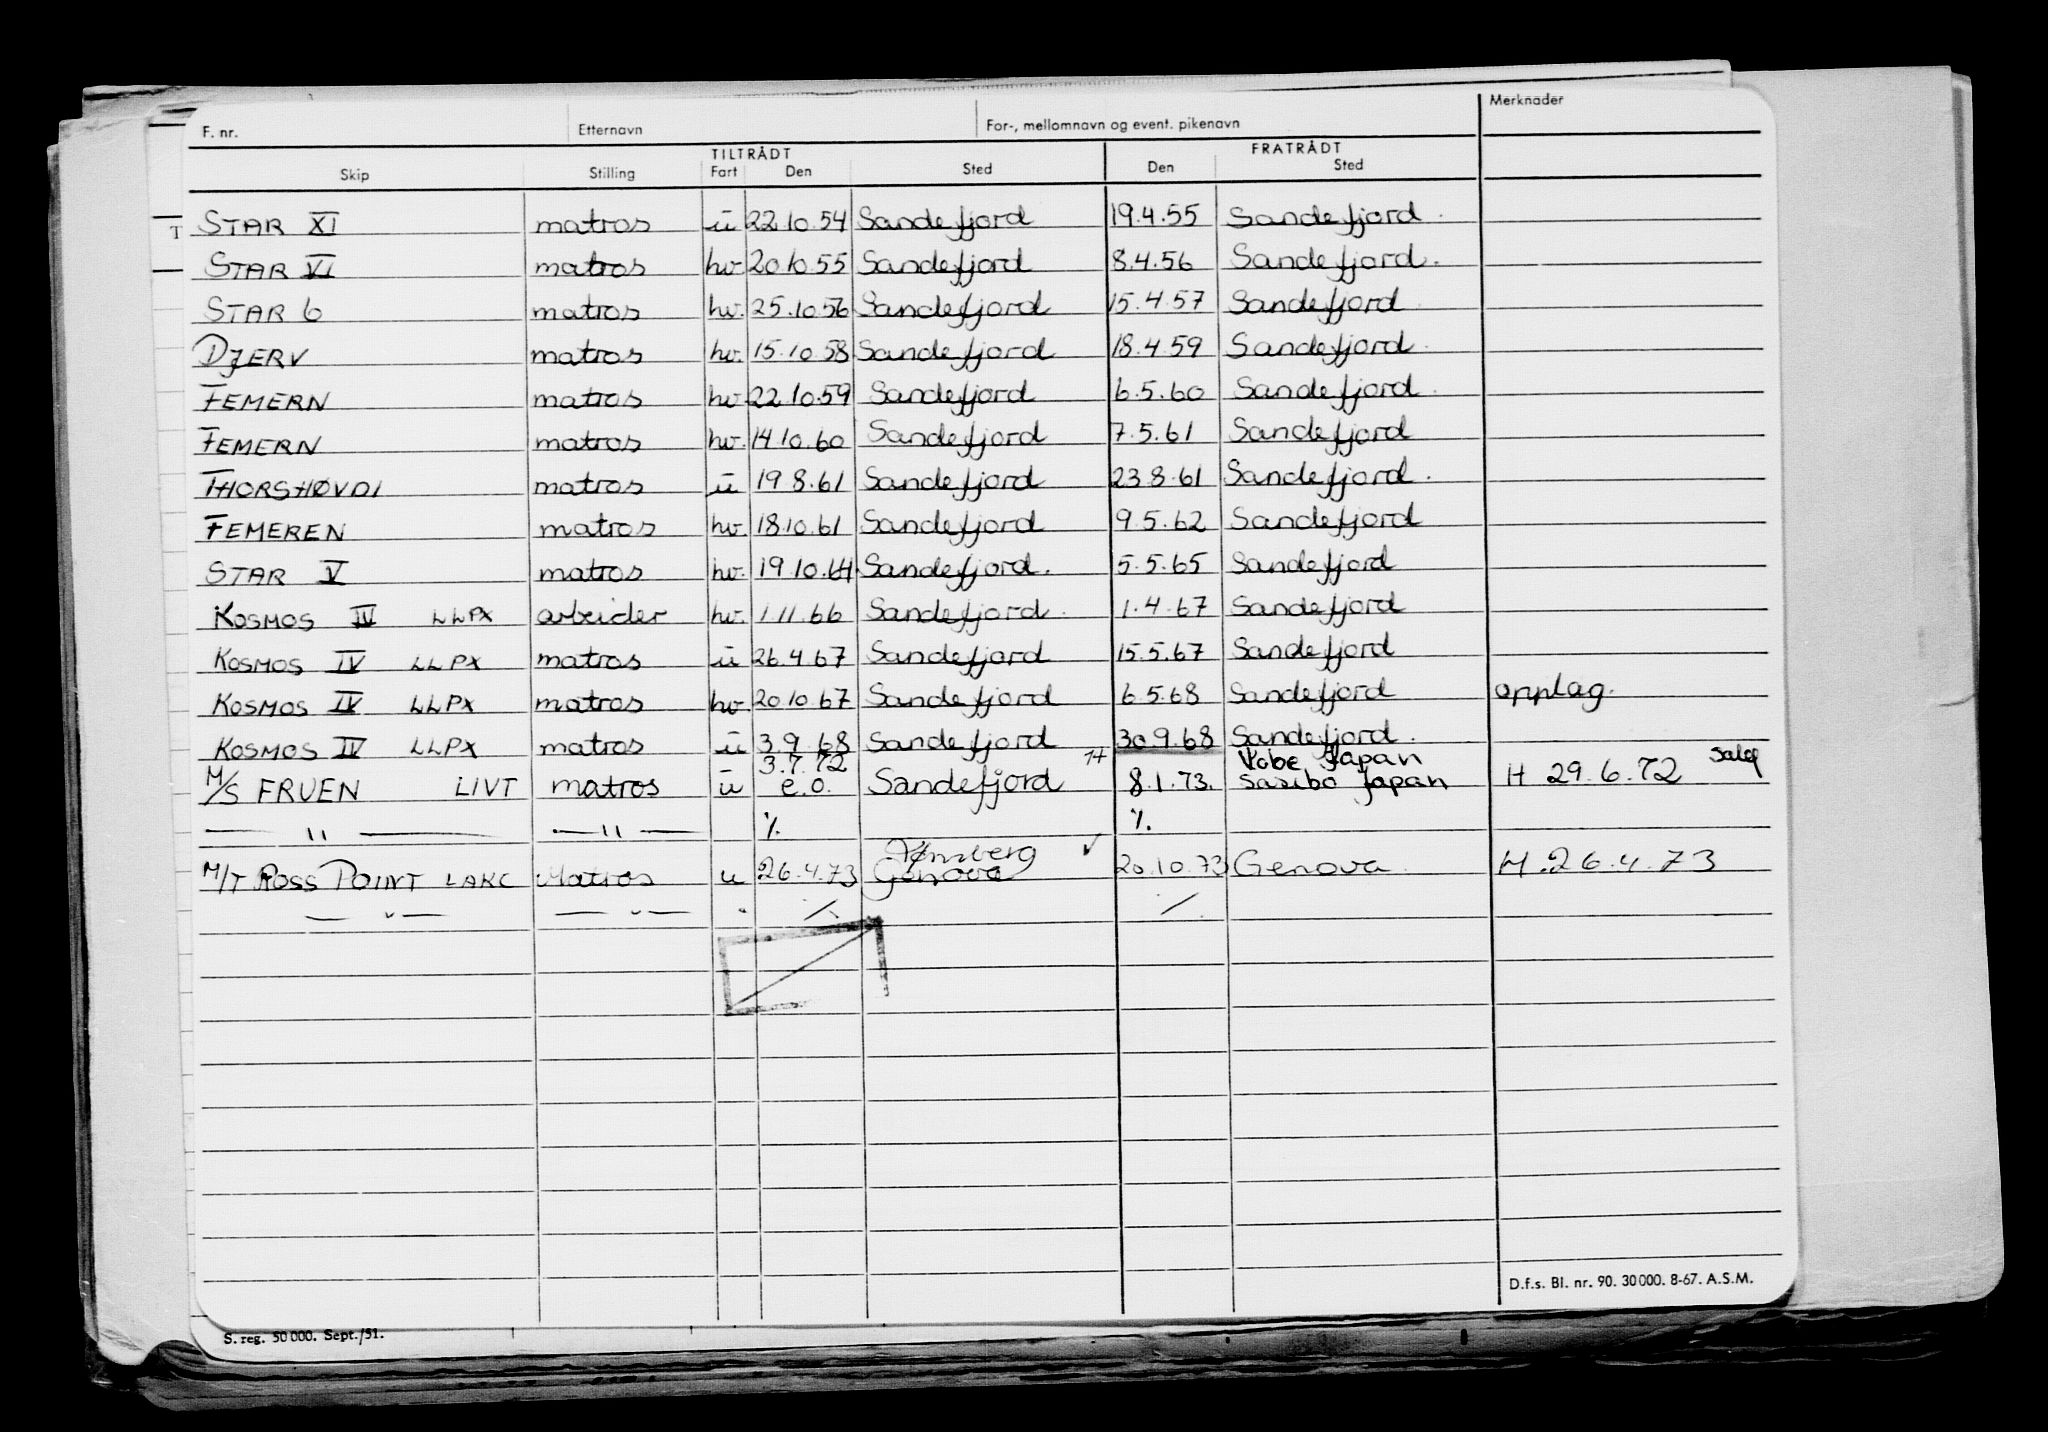 F. nr. Etternavn For-, mellomnavn og event. pikenavn Merknader
TILTRÅDT FRATRÅDT
Skip Stilling Fart Den Sted Den Sted
STAR XI matros ū 22.10.54 Sandefjord 19.4.55 Sandefjord
T
STAR VI matros hv. 20.10.55 Sandefjord 8.4.56 Sandefjord.
STAR 6 matros hv. 25.10.56 Sandefjord 15.4.57 Sandefjord
DJERV matros hv. 15.10.58 Sandefjord 18.4.59 Sandefjord
FEMERN matros hv. 22.10.59 Sandefjord 6.5.60 Sandefjord
FEMERN matros hv. 14.10.60 Sandefjord 7.5.61 Sandefjord
THORSHØVDI matros ū 19.8.61 Sandefjord 23.8.61 Sandefjord.
FEMEREN matros hv. 18.10.61 Sandefjord 9.5.62 Sandefjord
STAR V matros hv. 19.10.64. Sandefjord. 5.5.65 Sandefjord
KOSMOS IV LLPX arbeider hv. 1.11.66 Sandefjord. 1.4.67 Sandefjord
KOSMOS IV LLPX matros ū 26.4.67 Sandefjord 15.5.67 Sandefjord
KOSMOS IV LLPX matros hv. 20.10.67 Sandefjord 6.5.68 Sandefjord opplag.
KOSMOS IV LLPX matros ū 3.9.68 Sandefjord 30.9.68 Sandefjord.
3.7.72 Kobe Japan
M/S FRUEN LIVT matros ū e.o. Sandefjord 8.1.73. Sasebo Japan H 29.6.72
— " — — " — ٪. ٪.
Tønsberg ✓
M/T ROSS POINT LAKC Matros u 26.4.73 Genova 20.10.73 Genova. H.26.4.73
— " — — " — " ٪. ٪.
D.f.s. Bl. nr. 90. 30 000. 8-67. A.S.M.
S. reg. 50 000. Sept./51.